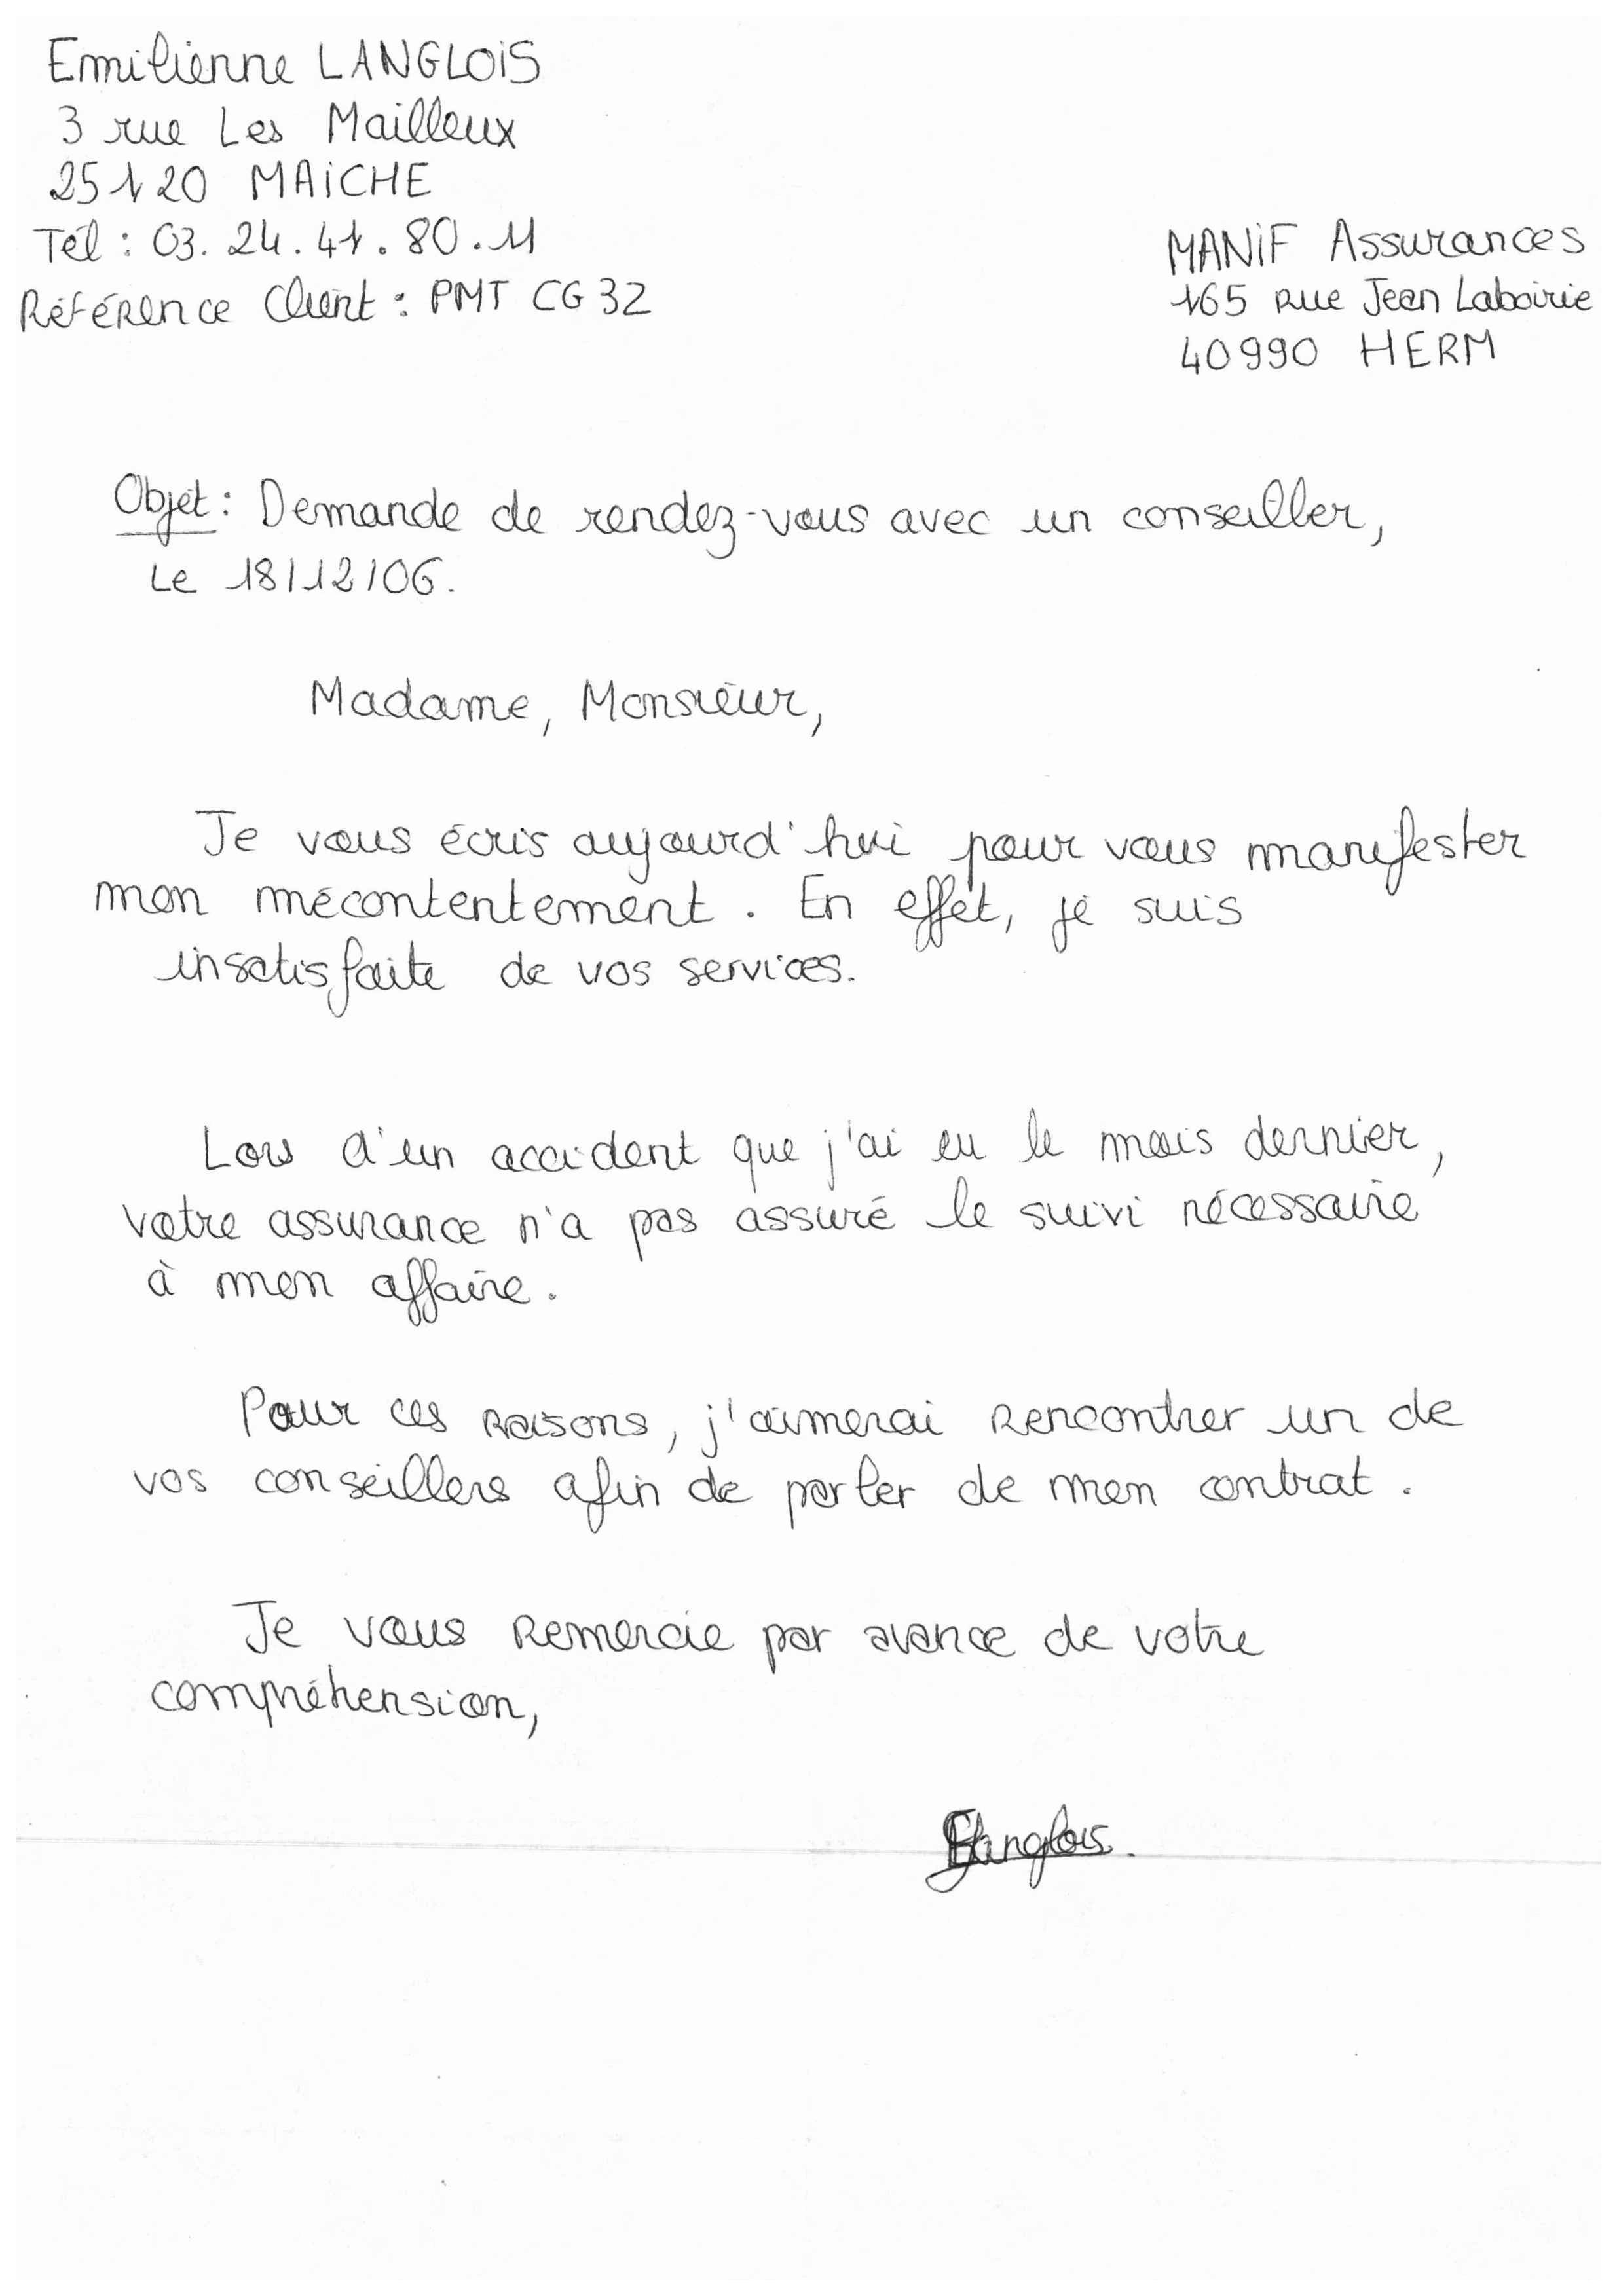 Emilienne LANGLOIS
3 rue Les Mailleux
25120 MAICHE
Tél : 03.24.41.80.11
Référence Client : PMT CG32
MANIF Assurances
165 rue Jean Laboirie
40990 HERM
Objet : Demande de rendez-vous avec un conseiller,
Le 18/12/06.
Madame, Monsieur,
Je vous écris aujourd'hui pour vous manifester
mon mécontentement. En effet, je suis
insatisfaite de vos services.
Lors d'un accident que j'ai eu le mois dernier,
votre assurance n'a pas assuré le suivi nécessaire
à mon affaire.
Pour ces raisons, j'aimerai rencontrer un de
vos conseillers afin de parler de mon contrat.
Je vous remercie par avance de votre
compréhension,
ELanglois.